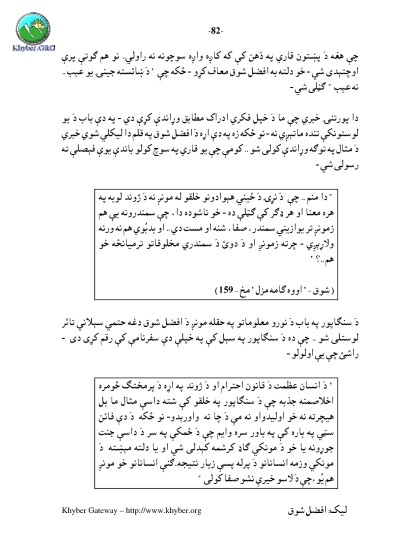 -82-
Khyber.ORG
چې هغه دَ پښتون قاري په ذهن کې که کاږه واږه سوچونه نه راولي. نو هم ګوتې پرې
اوچتېدې شي- خو دلته به افضل شوق معاف کړو - ځکه چې " دَ ښائسته جينۍ يو عيب..
نه عيب " ګڼلی شي-
دا پورتنۍ خبرې چې ما دَ خپل فکري ادراک مطابق وړاندې کړې دي - په دې باب دَ يو
لوستونکي تنده ماتېږي نه- نو ځکه زه په دې اړه دَ افضل شوق په قلم دا ليکلې شوې خبرې
دَ مثال په توګه وړاندې کولی شو.. کومې چې يو قاري په سوچ کولو باندې يوې فېصلې ته
رسولی شي-
" دا منم.. چې دَ نړۍ دَ ځينې هېوادونو خلقو له مونږ نه دَ ژوند لوبه په
هره معنا او هر ډګر کې ګټلې ده- خو ناشوده دا، چې سمندرونه يې هم
زمونږ تر يوازيني سمندر، صفا، شنه او مست دي.. او بدبُوي هم نه ورنه
ولاړېږي - چرته زمونږ او دَ دوئ دَ سمندري مخلوقاتو ترميانځه خو
هم..؟ "
( شوق - " اووه ګامه مزل " مخ - 159)
دَ سنګاپور په باب دَ نورو معلوماتو په حقله مونږ دَ افضل شوق دغه حتمي سېلاني تاثر
لوستلی شو .. چې ده دَ سنګاپور په سېل کې په خپلې دې سفرنامې کې رقم کړی دی -
راشئ چې يې اولولو-
" دَ انسان عظمت دَ قانون احترام او دَ ژوند په اړه دَ پرمختګ څومره
اخلاصمنه جذبه چې دَ سنګاپور په خلقو کې شته داسې مثال ما بل
هيچرته نه خو اوليدو او نه مې دَ چا نه واورېدو- نو ځکه دَ دې فائن
سټي په باره کې په باور سره وايم چې دَ ځمکې په سر دَ داسې جنت
جوړونه يا خو دَ مونکي ګاډ کرشمه کېدلی شي او يا دلته مېشته دَ
مونکي وزمه انسانانو دَ پرله پسې زيار نتيجه. ګنې انسانانو خو مونږ
هم يُو، چې دَ لاسو خيرې نشو صفا کولی "
Khyber Gateway – http://www.khyber.org
ليک: افضل شوق